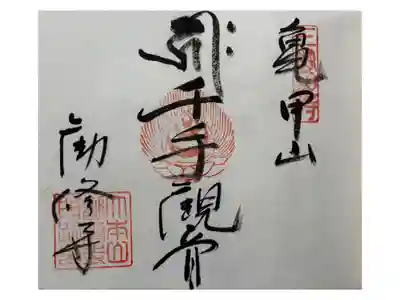 亀甲山
千手観音
勧修寺